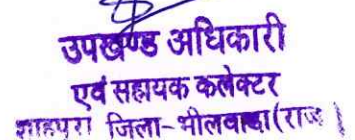 उपखण्ड अधिकारी
एवं सहायक कलेक्टर
शाहपुरा जिला-भीलवाडा(राज)